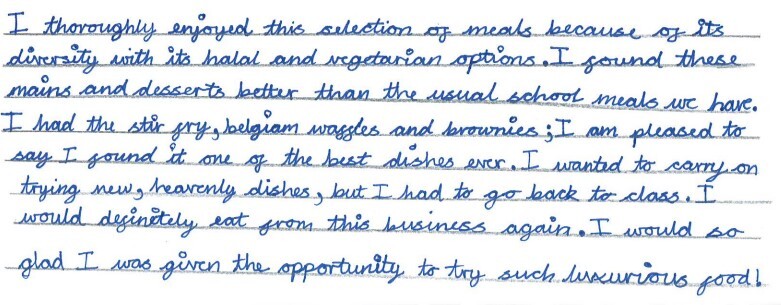 I thoroughly enjoyed this selection of meals because of its
diversity with its halal and vegetarian options. I found these
mains and desserts better than the usual school meals we have.
I had the stir fry, belgiam waffles and brownies; I am pleased to
say I found it one of the best dishes ever. I wanted to carry on
trying new, heavenly dishes, but I had to go back to class. I
would definetely eat from this business again. I would so
glad I was given the opportunity to try such luxurious food!